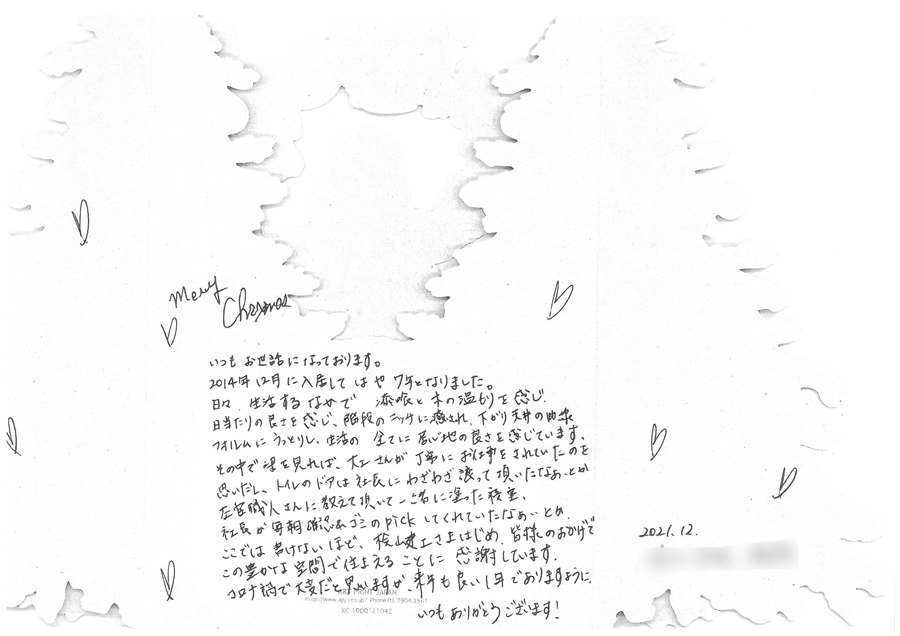 Merry
Christmas
いつも お世話になっております。
2014年12月に入居して はや 7年となりました。
日々、生活する なかで 漆喰と木の温かりを感じ
日当たりの良さを感じ、階段のニッチに癒され、下がり天井の曲線
フォルムに うっとりし、生活の 全てに居心地の良さを感じています。
その中で 梁を見れば、大工さんが丁寧に お仕事をされていたのを
思いだし、トイレのドアは社長に わざわざ 譲って頂いたなぁ、とか
左官職人さんに教えて頂いて 一緒に塗った寝室、
社長が毎朝確認&ゴミのpick してくれていたなぁ…とか
ここでは書けないほど、桧山建工さまはじめ、皆様のおかげで
この豊かな空間で住まえることに 感謝しています。
コロナ禍で大変だと思いますが、来年も良い1年でありますように。
いつもありがとうございます!
2021.12.
ART PRINT JAPAN
XC 1000121042